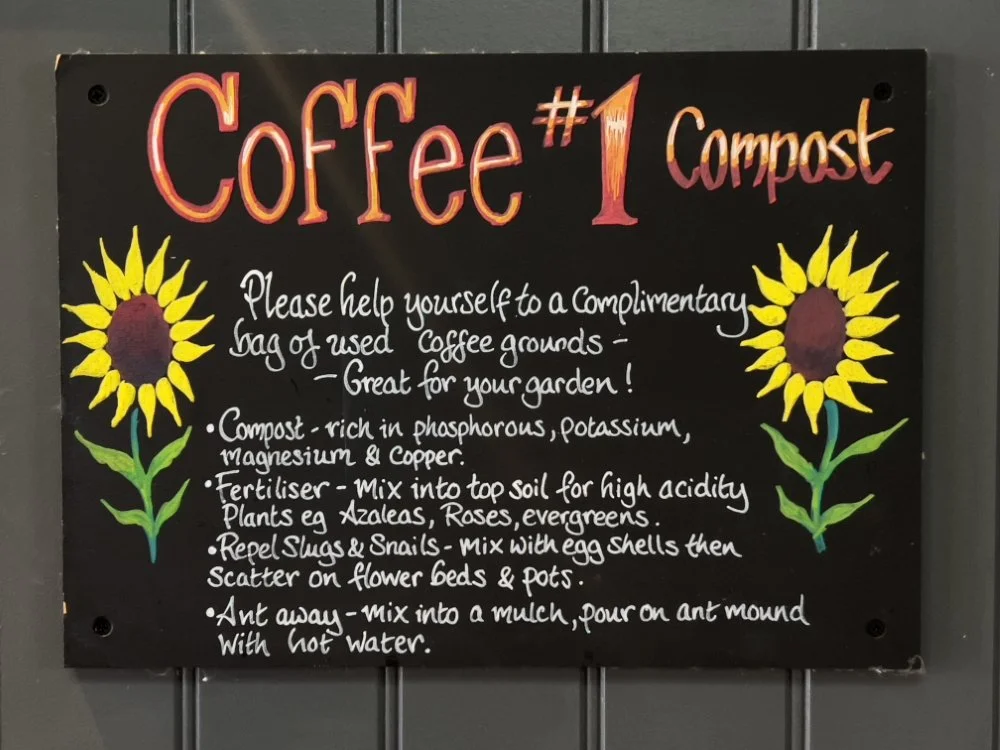 Coffee #1 Compost
Please help yourself to a Complimentary
bag of used Coffee grounds -
- Great for your garden!
• Compost - rich in phosphorous, potassium,
magnesium & Copper.
• Fertiliser - Mix into top soil for high acidity
Plants eg Azaleas, Roses, evergreens.
• Repel Slugs & Snails - Mix with egg shells then
scatter on flower beds & pots.
• Ant away - Mix into a mulch, pour on ant mound
with hot water.